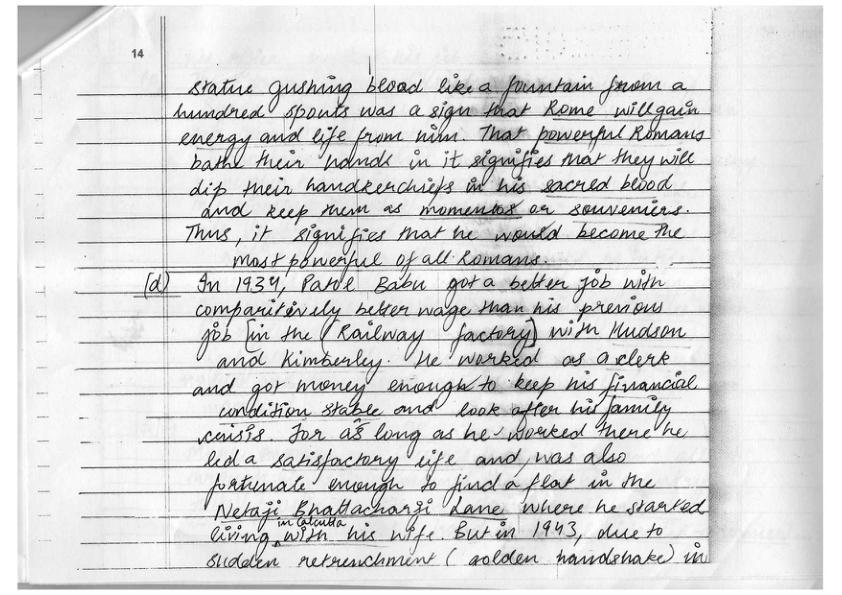 14
statue gushing blood like a fountain from a
hundred spouts was a sign that Rome will gain
energy and life from him. That powerful Romans
bathe their hands in it signifies that they will
dip their handkerchiefs in his sacred blood
and keep them as momentos or souveniers.
Thus, it signifies that he would become the
most powerful of all Romans.
(d) In 1934, Patol Babu got a better job with
comparitively better wage than his previous
job [in the (Railway factory] with Hudson
and Kimberley. He worked as a clerk
and got money enough to keep his financial
condition stable and look after his family
crisis. For as long as he worked there he
led a satisfactory life and, was also
fortunate enough to find a flat in the
Netaji Bhattacharji Lane where he started
living in Calcutta with his wife. But in 1943, due to
sudden retrenchment (golden handshake) in